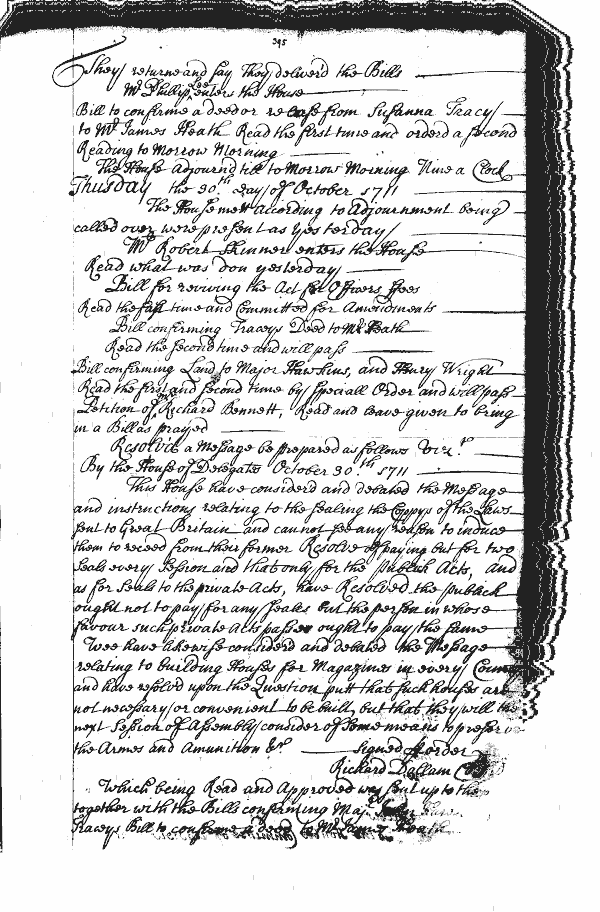 395
They returne and say They deliver'd the Bills
Mr Phillip Lee enters the House
Bill to confirme a deed or release from Susanna Tracy
to Mr James Heath Read the first time and orderd a second
Reading to Morrow Morning
The House Adjournd till to Morrow Morning Nine a Clock
Thursday the 30th day of October 1711
The House mett according to Adjournment being
called over were present as yesterday
Mr Robert Skinner enters the House
Read what was don yesterday
Bill for reviving the Act for Officers fees
Read the first time and Committed for Amendments
Bill confirming Traceys Deed to Mr Heath
Read the second time and will pass
Bill confirming Land to Major Hawkins, and Henry Wright
Read the first and second time by speciall Order and will pass
Petition of Richard Bennett, Read and leave given to bring
in a Bill as prayed
Resolv'd a Message be prepared as follows Vizt
By the House of Delegates October 30th 1711
This House have considerd and debated the Message
and instructions relating to the sealing the Coppys of the Laws
sent to Great Britain and cannot see any reason to induce
them to receed from their former Resolve of paying but for two
Seals every Session and that only for the publick Acts, and
as for Seals to the private Acts, have Resolved the publick
ought not to pay for any Seales but the person in whose
favour such private Acts passes ought to pay the same
Wee have likewise considerd and debated the Message
relating to building Houses for Magazines in every County
and have resolvd upon the Question putt that such houses are
not necessary or convenient to be built, but that they will the
next Session of Assembly consider of some means to preserve
the Armes and Amunition &c Signed p order
Richard Dallam
Which being Read and Approved was sent up to the
together with the Bills confirming Maj.
Traceys Bill to confirme a deed to Mr James Heath